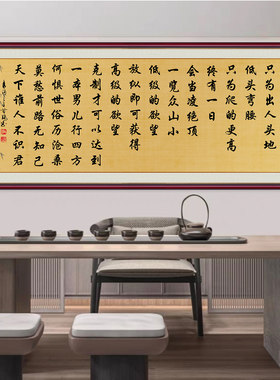 只为出人头地
低头弯腰
只为爬的更高
终有一日
会当凌绝顶
一览众山小
低级的欲望
放纵即可获得
高级的欲望
克制才可以达到
一本男儿行四方
何惧世俗历沧桑
莫愁前路无知己
天下谁人不识君